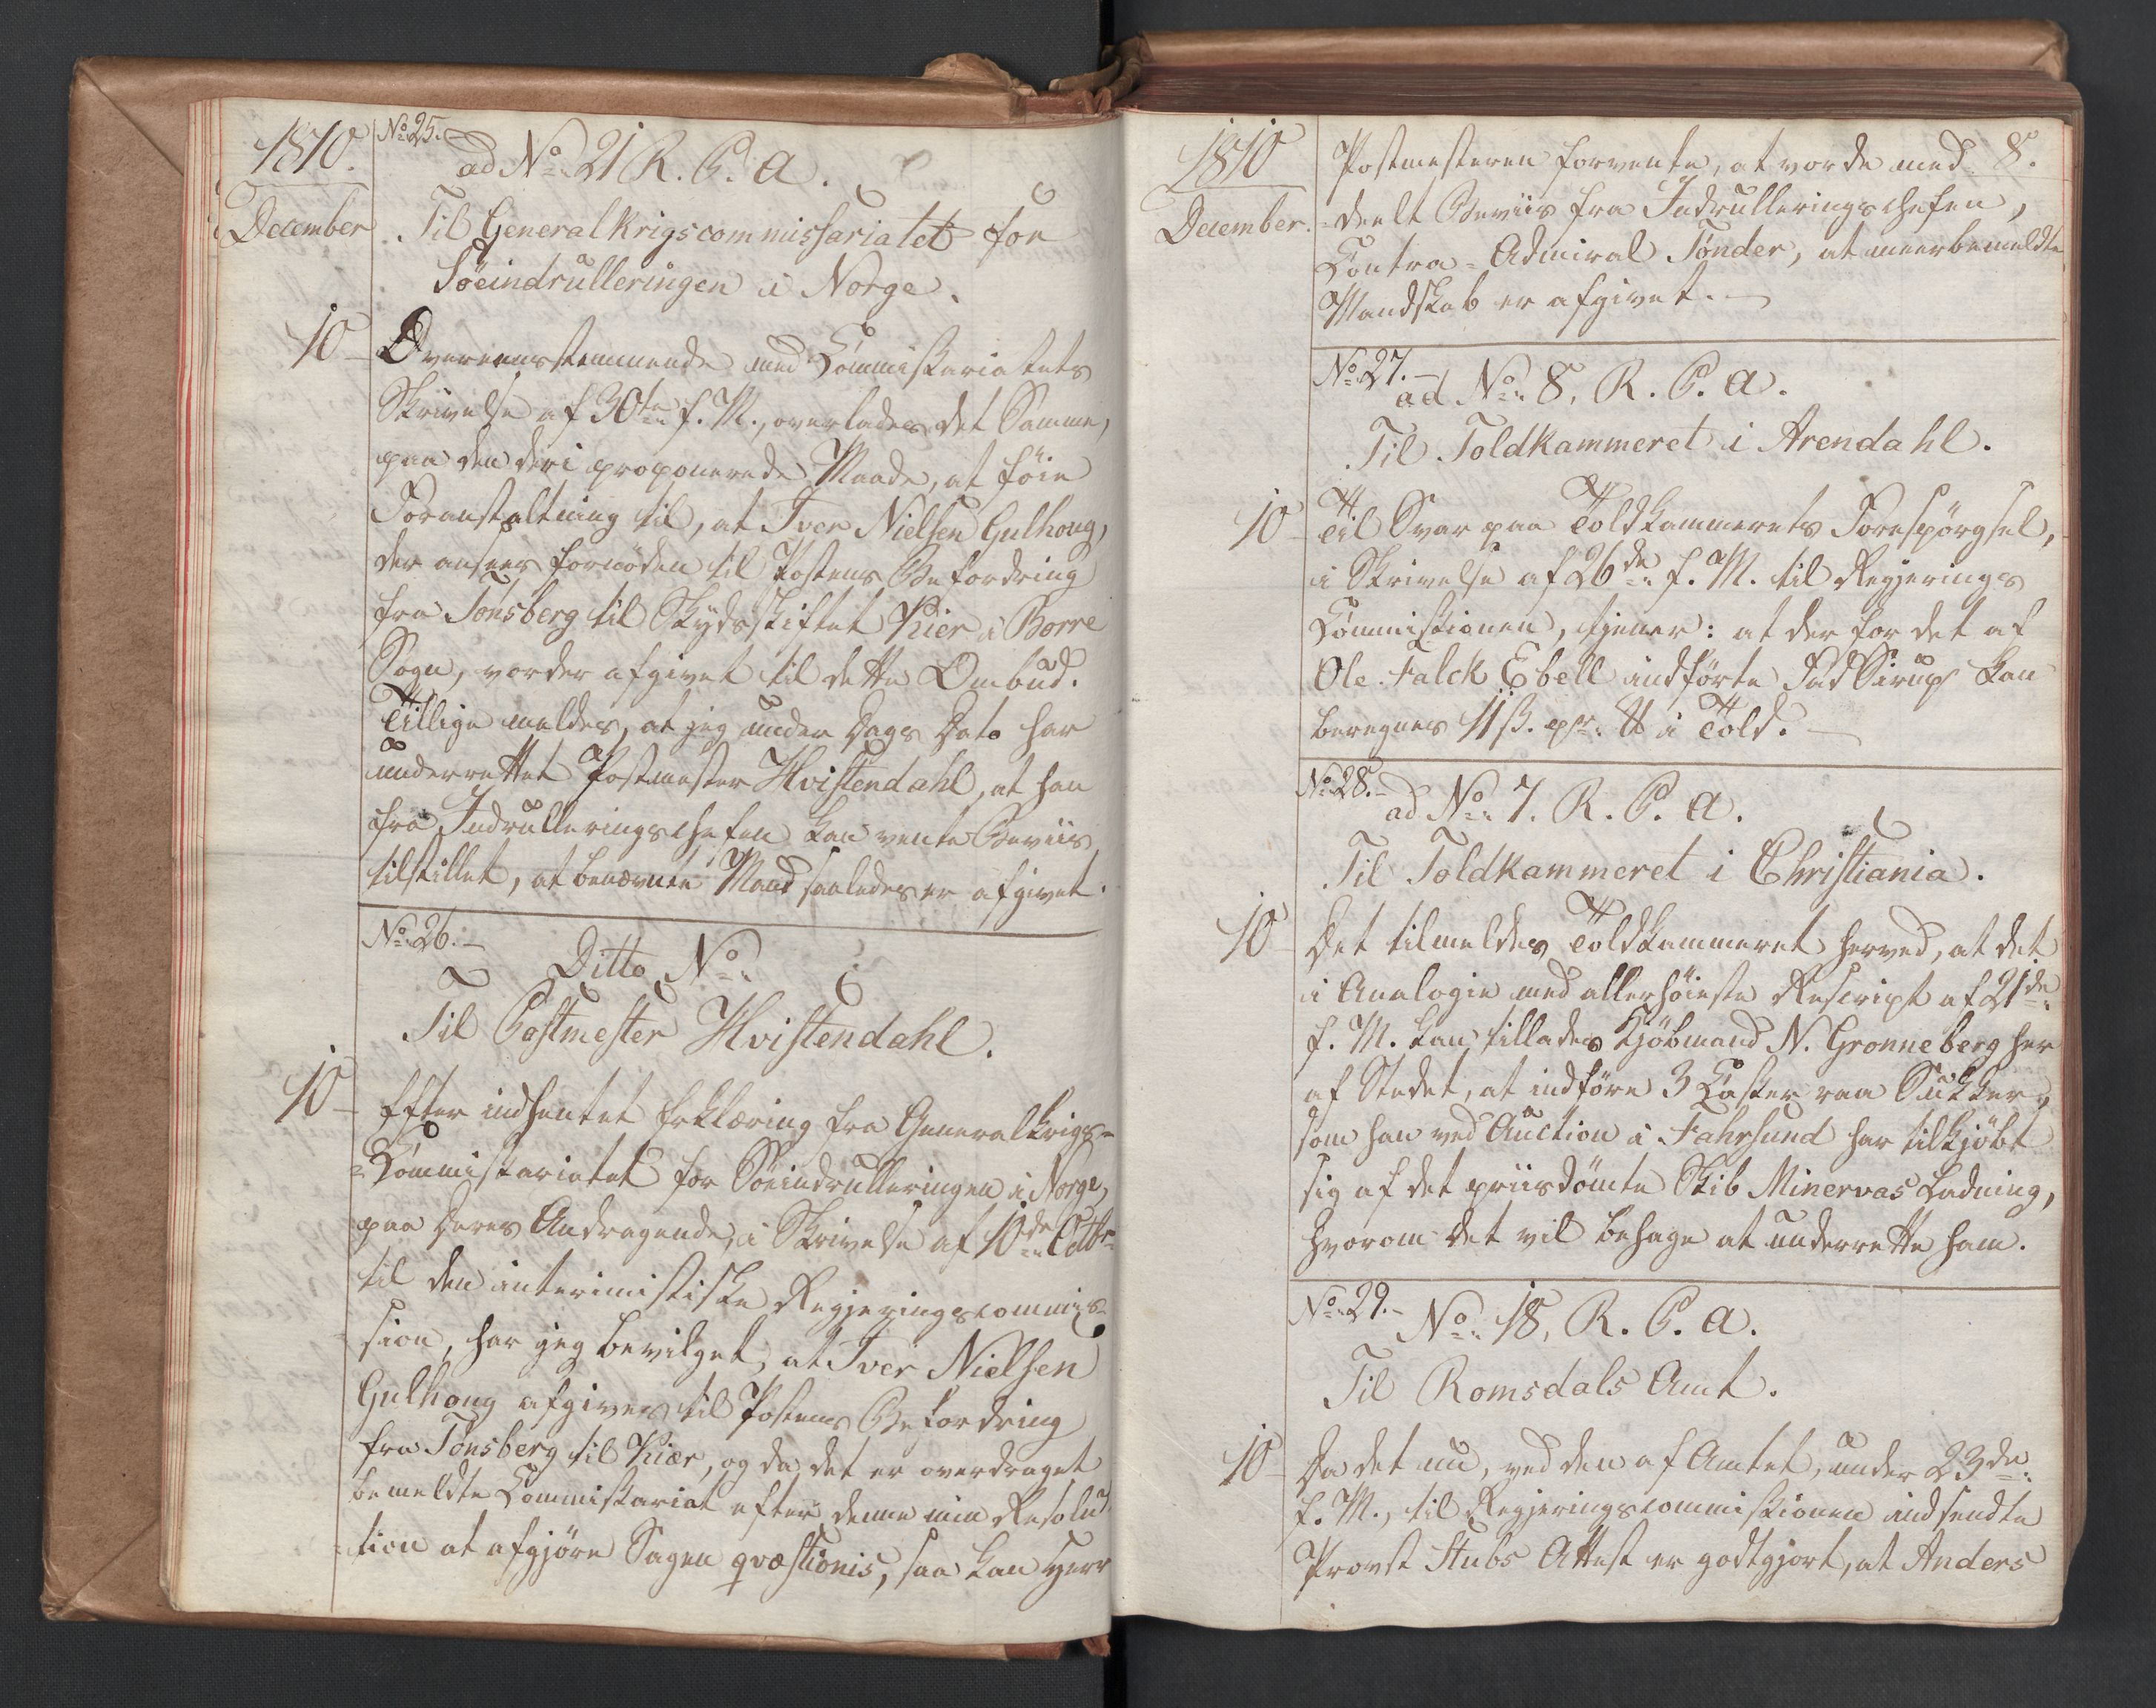 1810.
December
No. 25.
ad No. 21 R. C. A.
Til Generalkrigscommissariatet for
Søeindrulleringen i Norge.
10 Overeensstemmende med Commissariatets
Skrivelse af 30te f. M., overlades det Samme,
paa den deri proponerede Maade, at föie
Foranstaltning til, at Iver Nielsen Gulhoug,
der ansees fornöden til Postens Befordring
fra Tønsberg til Skydsskiftet Kier i Borre
Sogn, vorder afgivet til dette Ombud.
Tillige meldes, at jeg under Dags Dato har
underrettet Postmester Hvistendahl, at han
fra Indrulleringschefen kan vente Beviis
tilstillet, at benævnte Mand saaledes er afgivet.
No. 26.
Ditto No.
Til Postmester Hvistendahl.
10 Efter indhentet Erklæring fra Generalkrigs-
-Commissariatet for Søeindrulleringen i Norge,
paa Deres Andragende, i Skrivelse af 10de Octbr.
til den interimistiske Regjeringscommis-
sion, har jeg bevilget, at Iver Nielsen
Gulhoug afgives til Postens Befordring
fra Tønsberg til Kiær, og da det er overdraget
bemeldte Commissariat efter denne min Resolu-
-tion at afgjöre Sagen qvæstionis, saa kan Herr
1810
December.
8.
Postmesteren forvente, at vorde med-
-deelt Beviis fra Indrulleringschefen,
Contra-Admiral Tønder, at meerbemeldte
Mandskab er afgivet.
No. 27.
ad No. 8, R. C. A.
Til Toldkammeret i Arendahl.
10 Til Svar paa Toldkammerets Forespörgsel,
i Skrivelse af 26de f. M. til Regjerings
Commissionen, tjener: at der for det af
Ole Falck Ebell indförte Fad Sirup kan
beregnes 1 1 ß. pr. ℔ i Told.
No. 28.
ad No. 7. R. C. A.
Til Toldkammeret i Christiania.
10 Det tilmeldes Toldkammeret herved, at det
i Analogie med allerhöieste Rescript af 21de
f. M. kan tillades Kjöbmand N. Gronneberg her
af Stedet, at indföre 3 Kasker raa Sukker,
som han ved Auction i Fahrsund har tilkjöbt
sig af det priisdömte Skib Minervas Ladning,
hvorom det vil behage at underrette ham.
No. 29.
No. 18, R. C. A.
Til Romsdals Amt.
10 Da det nu, ved den af Amtet, under 23de
f. M., til Regjeringscommissionen indsendte
Provst Stubs Attest er godtgjort, at Anders